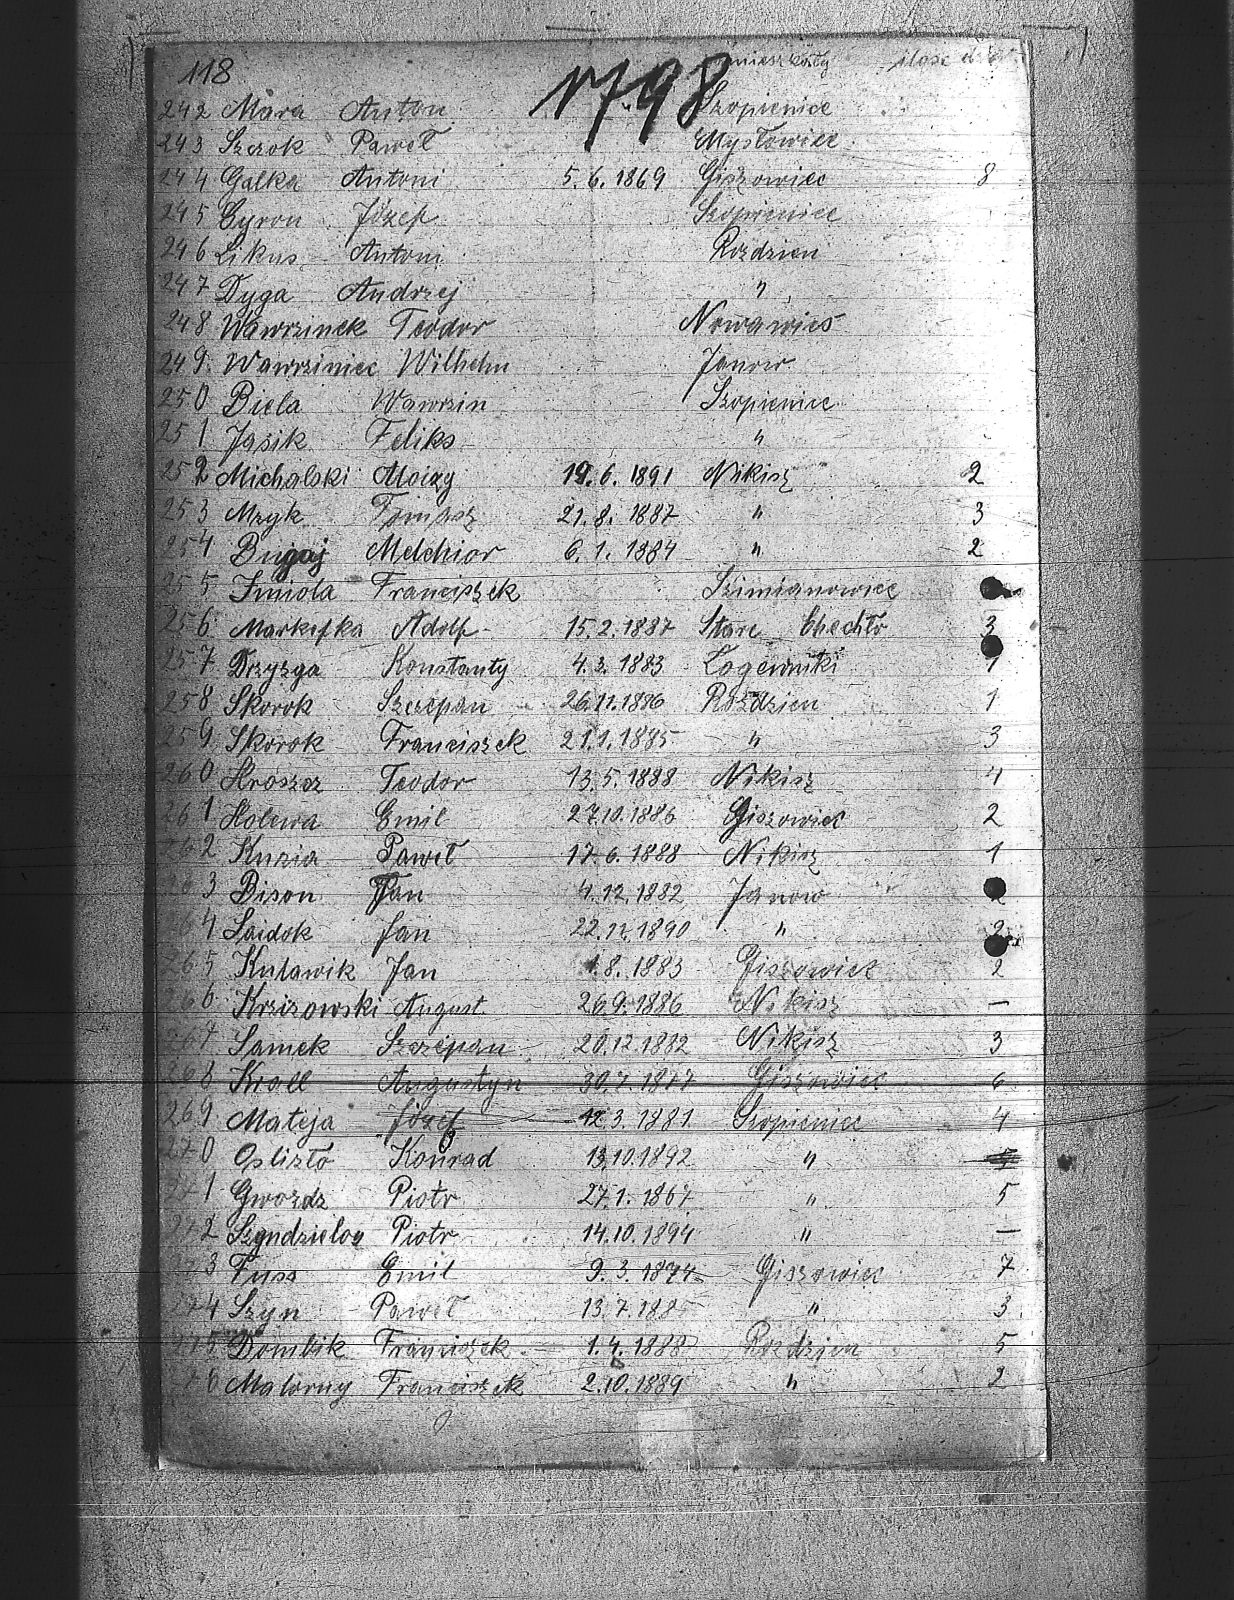 118 1798 ilość
242 Mara Anton Szopienice
243 Szczok Paweł Mysłowice
244 Gałka Antoni 5.6.1869 Giszowiec 8
245 Cyron Józef Szopienice
246 Likus Antoni Rozdzien
247 Dyga Andrzej "
248 Wawrzinek Teodor Nowawieś
249 Wawrziniec Wilhelm Janow
250 Biela Wawrzin Szopienice
251 Jasik Feliks "
252 Michalski Aloizy 19.6.1891 Nikisz 2
253 Mzyk Tomasz 21.8.1887 " 3
254 Bugaj Melchior 6.1.1884 " 2
255 Imiola Franciszek Szimianowice
256 Markefka Adolf 15.2.1887 Stare Chechło 3
257 Drzyzga Konstanty 4.2.1883 1
258 Skorok Szczepan 26.11.1886 Rozdzien 1
259 Skorok Franciszek 21.1.1885 " 3
260 Hroszcz Teodor 13.5.1888 Nikisz 4
261 Holewa Emil 27.10.1886 Giszowiec 2
262 Kuzia Paweł 17.6.1888 Nikisz 1
263 Bison Jan 4.12.1882 Janow 2
264 Saidok Jan 22.11.1890 " 2
265 Kulawik Jan 1.8.1883 Giszowiec 2
266 Krzizowski August 26.9.1886 Nikisz —
267 Samek Szczepan 20.12.1882 Nikisz 3
268 Kroll Augustyn 30.7.1877 Giszowiec 6
269 Mateja Józef 12.3.1881 Szopienice 4
270 Oslizło Konrad 13.10.1892 "
271 Gwozdz Piotr 27.1.1867 " 5
272 Szyndzielorz Piotr 14.10.1894 " —
273 Fuss Emil 9.3.1874 Giszowiec 7
274 Szyn Paweł 13.7.1885 " 3
275 Dombik Franciszek 1.4.1888 Rozdzien 5
276 Malorny Franciszek 2.10.1889 " 2